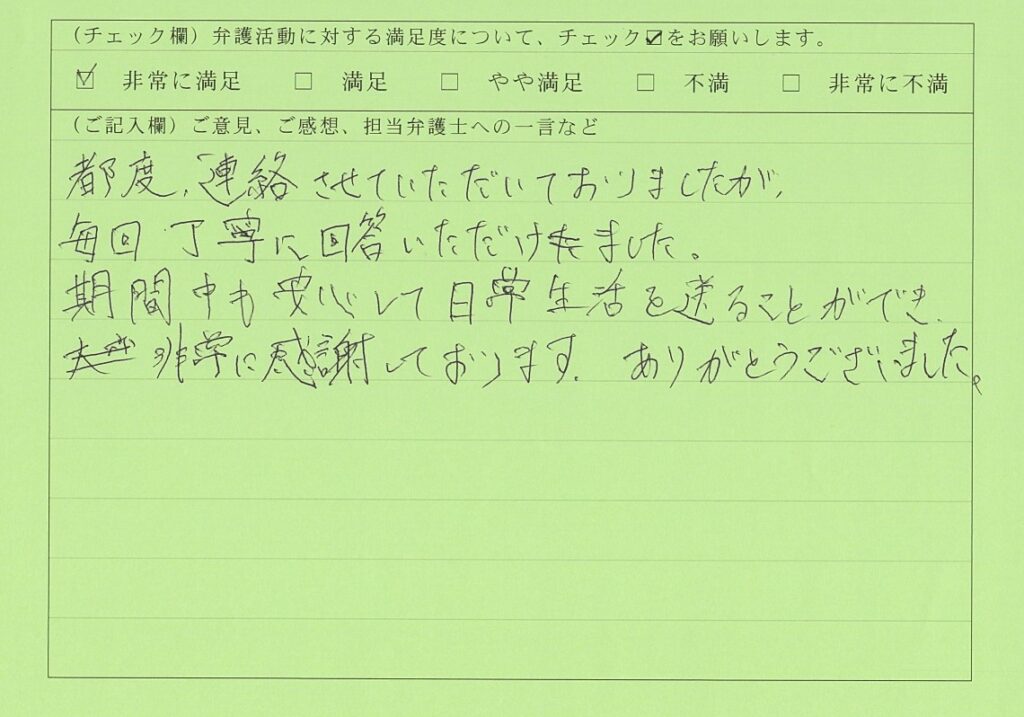 （チェック欄）弁護活動に対する満足度について、チェック☑をお願いします。
☑ 非常に満足 □ 満足 □ やや満足 □ 不満 □ 非常に不満
（ご記入欄）ご意見、ご感想、担当弁護士への一言など
都度、連絡させていただいておりましたが、
毎回丁寧に回答いただけました。
期間中も安心して日常生活を送ることができ、
非常に感謝しております。ありがとうございました。